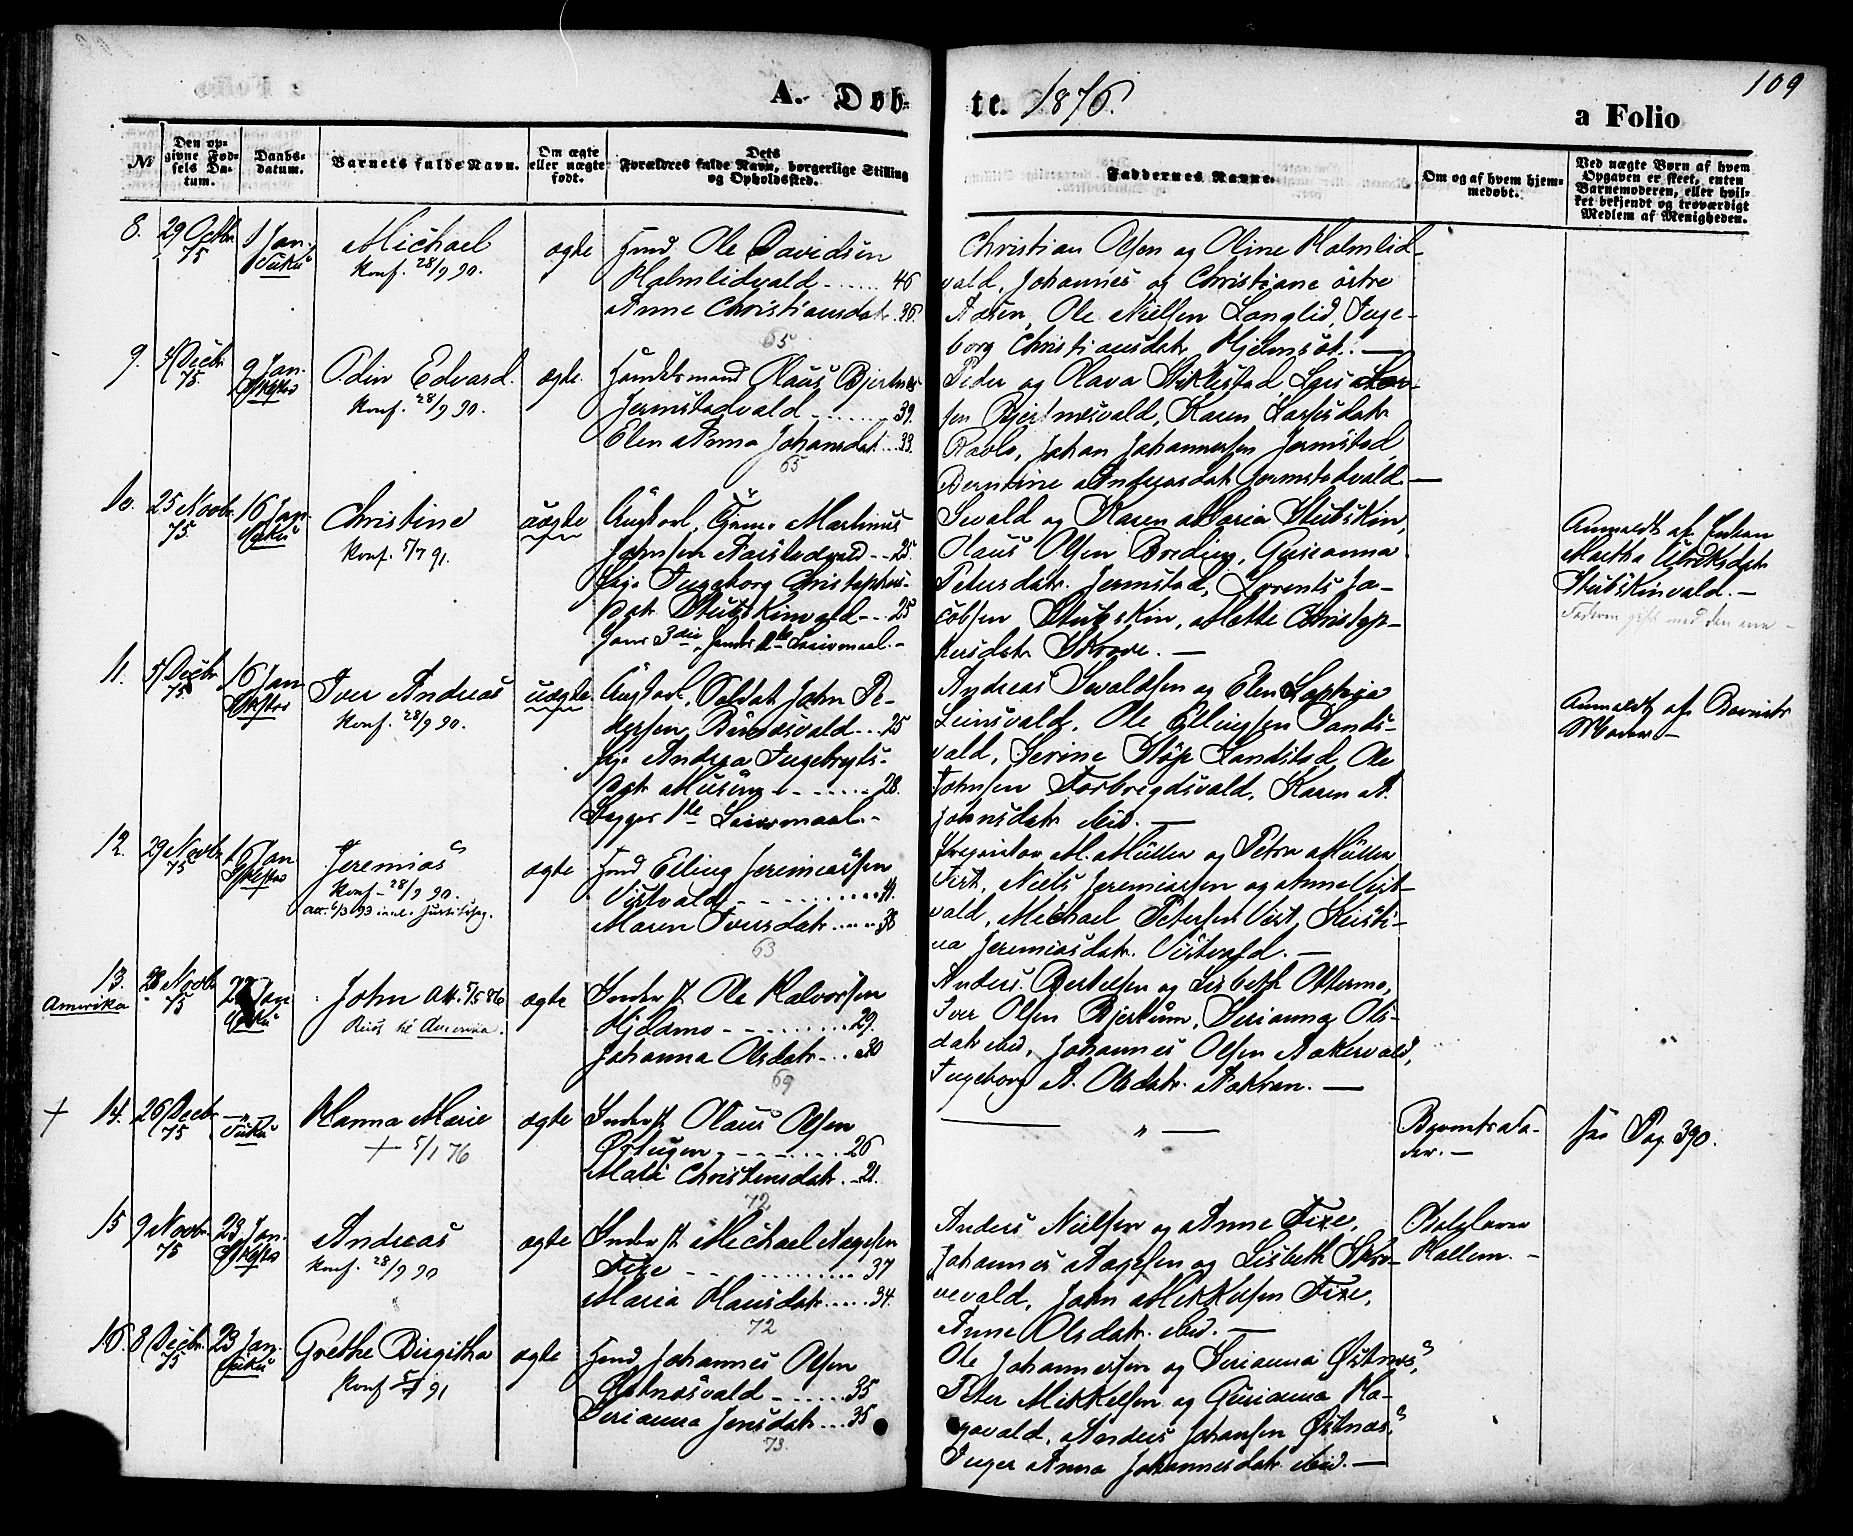 109
A. Døb-
te. 1876.
a Folio
No
Den op-
givne Fød-
sels Da-
tum.
Daabs-
datum.
Barnets fulde Navn.
Om ægte
eller uægte
født.
Dets
Forældres fulde Navn, borgerlige Stilling
og Opholdssted.
Faddernes Navne.
Om og af hvem hjem-
medøbt.
Ved uægte Børn af hvem
Opgaven er skeet, enten
Barnemoderen, eller hvil-
ket bekjendt og troværdigt
Medlem af Menigheden.
8.
29 Octbr
75
1 Jan.
Vuku
Michael
Konf. 28/9 90.
ægte
Husm. Ole Davidsen
Holmlidvald - 46
Anne Christiansdatr 36.
65
Christian Olsen og Oline Holmlid-
vald, Johannes og Christiane østre
Aasen, Ole Nielsen Langlid, Inge-
borg Christiansdatr Hjelmsøt. —
9.
5 Decbr
75
9 Jan.
Odin Edvard.
Konf. 28/9 90.
ægte.
Handelsmand Olaus Bjertnes
Jermstadvald - 39.
Elen Anna Johansdatr 33.
65
Peder og Olava Stiklestad, Lars Lar-
sen Bjertnesvald, Karen Larsdatr
Johan Johannessen Jermstad,
Berntine Andreasdatr Jermstadvald. —
10.
25 Novbr
75.
16 Jan
Vuku
Christine
Konf. 5/7 91.
uægte
Ungkarl, Tjener Martinus
Johnsen - 25.
Pige Ingeborg Christophers-
datr Stubskinvald - 25
Hans 3die, hendes 1ste Leiermaal. -
Sevald og Karen Maria Stubskin,
Olaus Olsen Breding, Gurianna
Petersdatr. Jermstad, Lorents Ja-
cobsen Stubskin, Mette Christop-
hersdatr Skrove. —
Anmeldt af Enken
Martha Ulriksdatr
Stubskinvald. -
Faderen gift med den ene -
11.
5 Decbr
75
16 Jan
Iver Andreas
Konf. 28/9 90.
uægte
Ungkarl, Soldat John Pe-
dersen - 25
Pige Andrea Ingebrigts-
datr - 28.
Begges 1ste Leiermaal. -
Andreas Sevaldsen og Elen Sophia
Leinsvald, Ole Ellingsen Sands-
vald, Serine Landstad, Ole
Johnsen Forbrigdsvald, Karen A.
Johnsdatr ibid. —
Anmeldt af Barnets
Moder -
12.
29 Novbr
75
16 Jan
Jeremias
Konf. 28/9 90.
att. 6/3 93
ægte
Husm Elling Jeremiassen
Vistvald - 41.
Maren Iversdatr - 38
63
M. Müller og Petra Müller
Vist, Niels Jeremiassen og Anne Vist-
vald, Michael Petersen Vist, Kristi-
na Jeremiasdatr. Vistvald. —
13.
Amerika
28 Novbr
75
Jan
Vuku
John Att. 7/5 86
Reist til Amerika.
ægte
Inderst Ole Halvorsen
Hjelamo - 29.
Johanna Olsdatr - 30
69
Anders Bertelsen og Lisbeth Okkermo,
Iver Olsen Bjertum, Serianna Ols-
datr ibid, Johannes Olsen Aakervald,
Ingeborg A. Olsdatr. —
+ 14.
26 Decbr
75
"
Vuku
Hanna Marie
+ 5/1 76
ægte
Inderst Olaus Olsen
Østugen - 26
Mali Christensdatr. - 21.
72
— " —
Barnets Fa-
der. -
see Pag. 390.
15
9 Novbr.
75
23 Jan.
Andreas
Konf. 28/9 90
ægte
Inderst Michael Aagesen
- 37
Maria Hansdatr - 34.
72
Anders Nielsen og Anne
Johannes Aagesen og Lisbeth Skro-
vevald, John Mikkelsen
Anne Olsdatr. ibid. —
Hallem. -
16.
8 Decbr.
75
23 Jan.
Vuku
Grethe Birgitha
Konf 5/7 91
ægte
Husm Johannes Olsen
Østnesvald - 35
Serianna Jensdatr - 35
73.
Ole Johannessen og Serianna Østnes,
Peter Mikkelsen og Gurianna Ha-
gavald, Anders Johansen Østnes,
Inger Anna Johannesdatr ibid. —